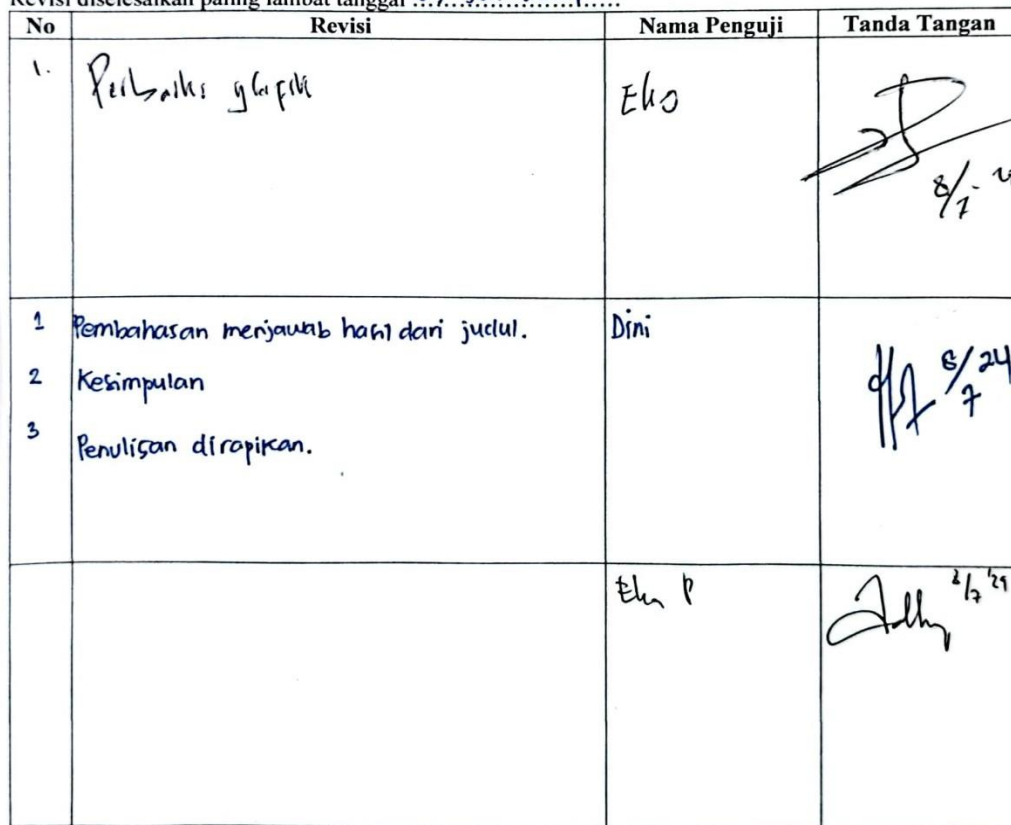 Revisi diselesaikan paling lambat tanggal
No Revisi Nama Penguji Tanda Tangan
1. Perbaiki grafik Eko
8/7
1 Pembahasan menjawab hasil dari judul. Dini
8/7 24
2 Kesimpulan
3 Penulisan dirapikan.
Eka P